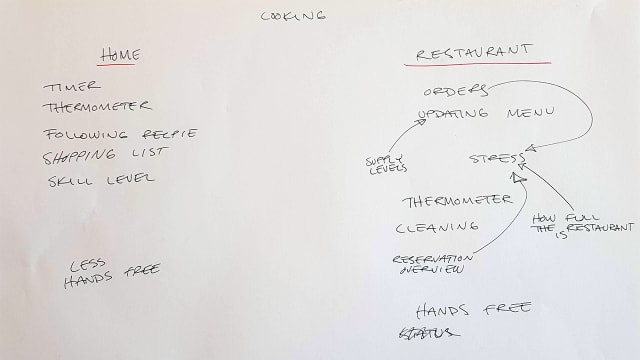 COOKING
HOME
TIMER
THERMOMETER
FOLLOWING RECPIE
SHOPPING LIST
SKILL LEVEL
LESS
HANDS FREE
RESTAURANT
ORDERS
UPDATING MENU
SUPPLY
LEVELS
STRESS
THERMOMETER
CLEANING
HOW FULL
THE RESTAURANT
IS
RESERVATION
OVERVIEW
HANDS FREE